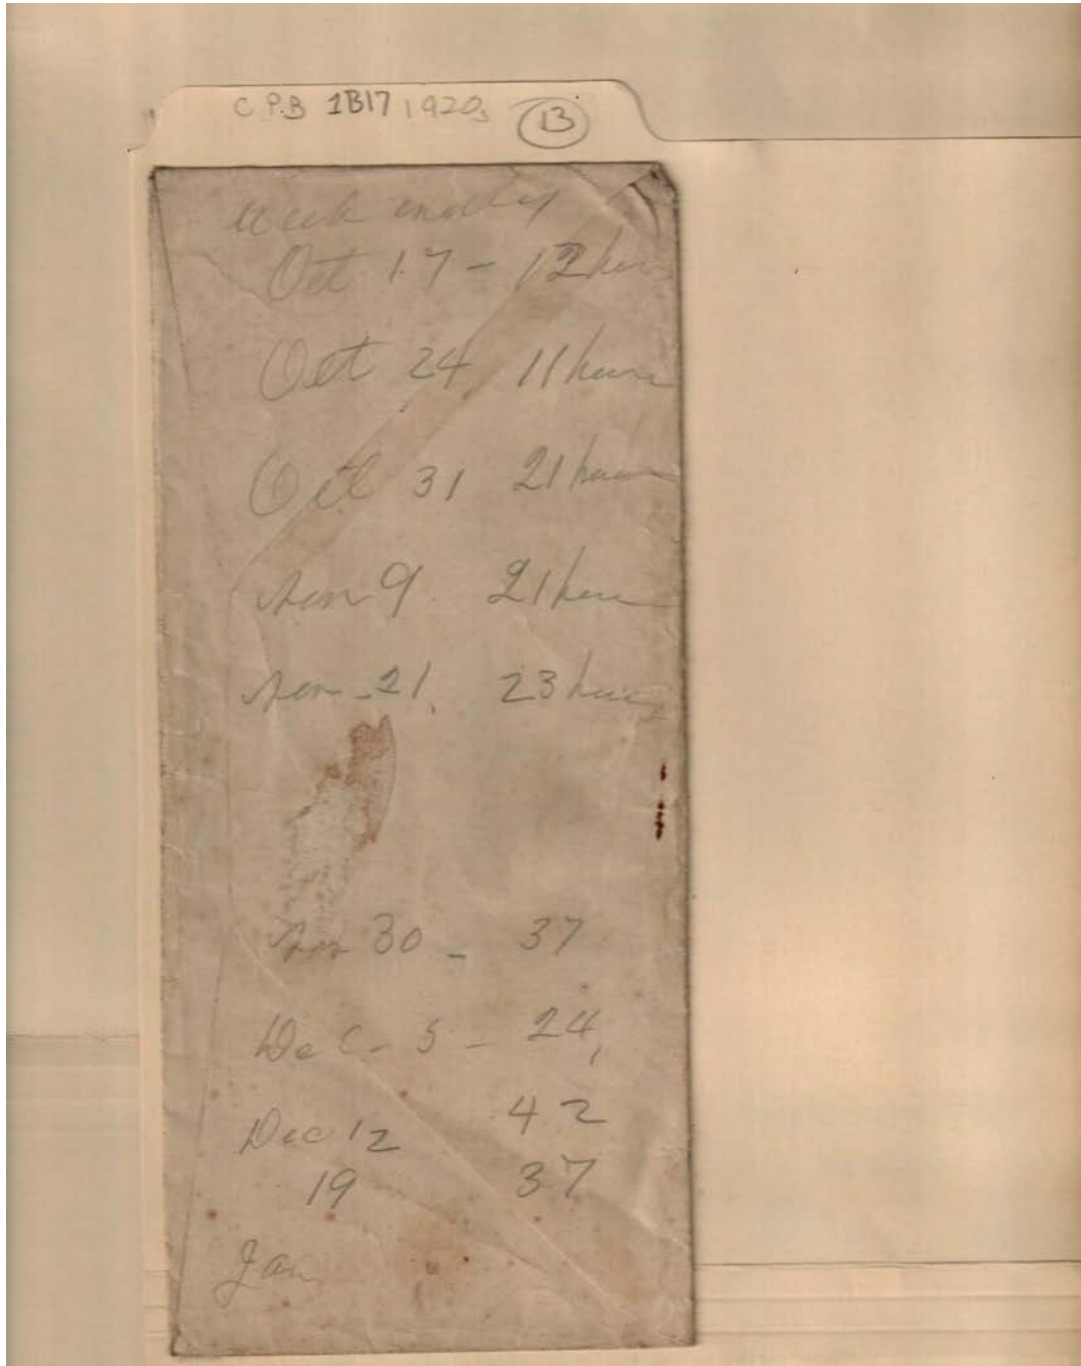 C P.B 1B17 1920s 13
Week ending
Oct 17 - 12 hours
Oct 24, 11 hours
Oct 31 21 hours
Nov 9. 21 hours
Nov - 21, 23 hours
Nov 30 - 37
Dec - 5 - 24,
Dec 12 42
19 37
Jan